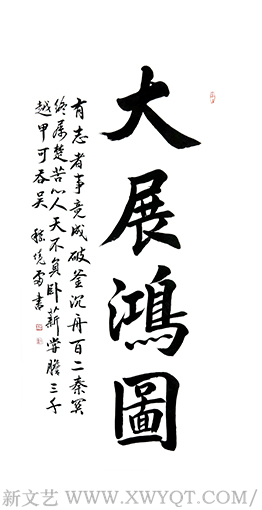 大展鴻圖
有志者事竟成破釜沉舟百二秦
終属楚苦心人天不負卧薪嘗膽三千
越甲可吞吴 書
新文艺 WWW.XWYQT.COM/